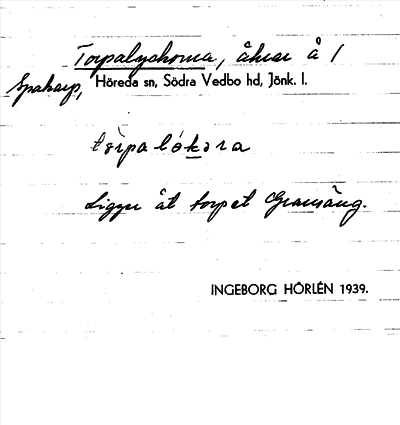 Torpalyckorna, åkrar å /
Spakarp, Höreda sn, Södra Vedbo hd, Jönk. l.
tòrpalókəra
Ligger åt torpet Gransäng.
INGEBORG HÖRLÉN 1939.